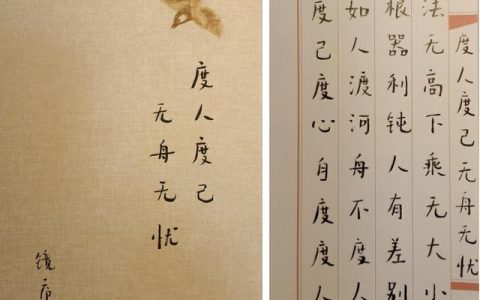 度人度己
无舟无忧
镜
度人度己无舟无忧
法无高下乘无大小
根器利钝人有差别
如人渡河舟不度人
度己度心自度度人